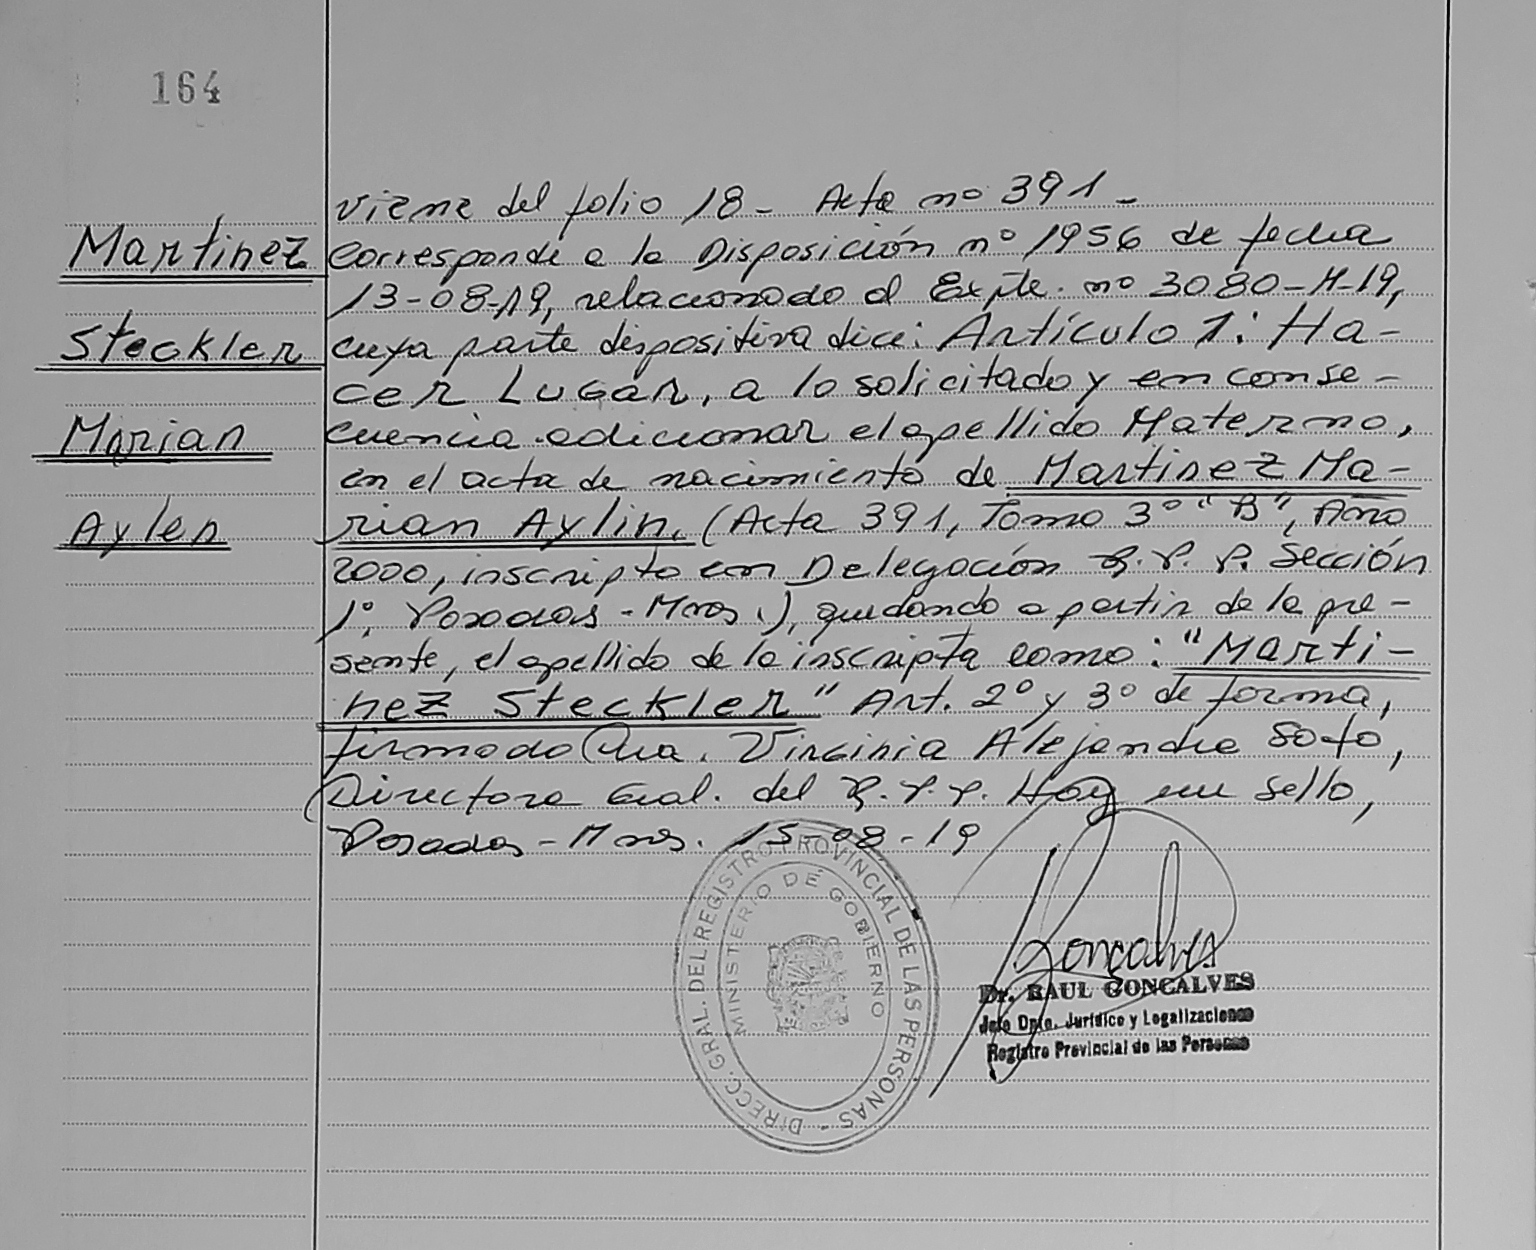 164
Martinez
Steckler
Marian
Aylen
viene del folio 18 - Acta nº 391 -
Corresponde a la Disposición nº 1956 de fecha
13-08-19, relacionado al Expte. nº 3080-M-19,
cuya parte dispositiva dice: Artículo 1: Ha-
cer Lugar, a lo solicitado y en conse-
cuencia adicionar el apellido Materno,
en el acta de nacimiento de Martinez Ma-
rian Aylin. (Acta 391, Tomo 3º "B", Año
2000, inscripto en Delegación R.P.P. Sección
1º, Posadas - Mnes.), quedando a partir de la pre-
sente, el apellido de la inscripta como: "Marti-
nez Steckler" Art. 2º y 3º de forma,
firmado Dra. Virginia Alejandra Soto,
Directora Gral. del R.P.P. Hay un sello,
Posadas - Mnes. 15-08-19
DIRECC. GRAL. DEL REGISTRO PROVINCIAL DE LAS PERSONAS -
MINISTERIO DE GOBIERNO
Goncalves
Dr. RAUL GONCALVES
Jefe Dpto. Jurídico y Legalizaciones
Registro Provincial de las Personas